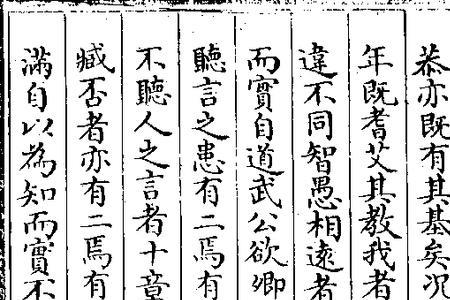 恭亦既有其基矣况
年既耆艾其教我者
違不同智愚相遠者
而實自道武公欲卿
聽言之患有二焉有
不聽人之言者十章
臧否者亦有二焉有
滿自以為知而實不